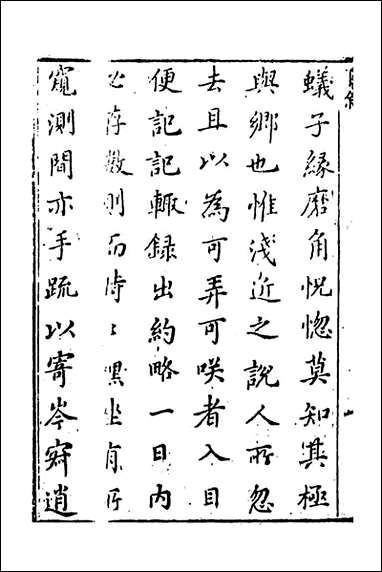 蟻子緣磨角恍惚莫知其極
與鄉也惟淺近之說人所忽
去且以為可弄可咲者入目
便記記輒録出約略一日内
必存數則而時時嘿坐有所
窺測間亦手疏以寄岑寂逍